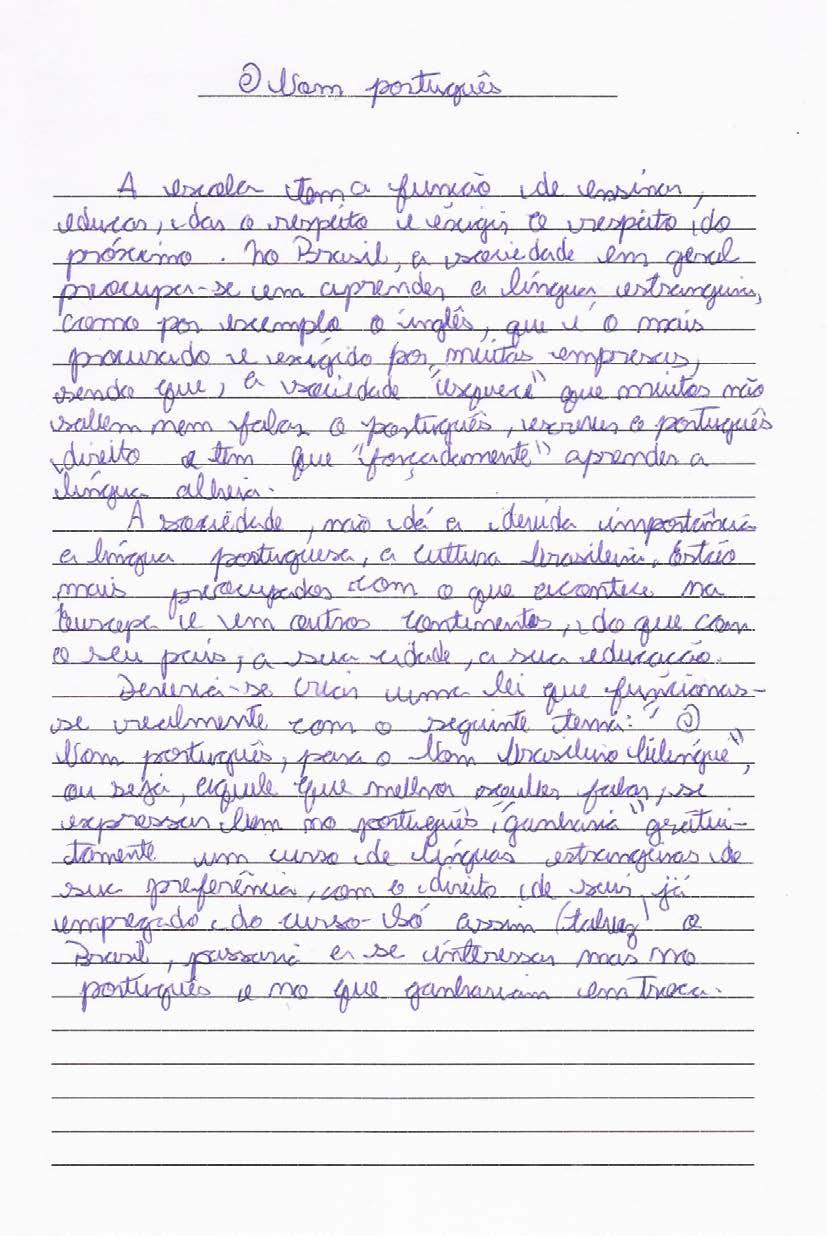 O bom português
A escola tem a função de ensinar,
educar, dar o respeito e exigir o respeito do
próximo. No Brasil, a sociedade em geral
preocupa-se em aprender a língua estrangeira,
como por exemplo o inglês, que é o mais
procurado e exigido por muitas empresas,
sendo que, a sociedade "esquece" que muitos não
sabem nem falar o português, escrever o português
direito e tem que "forçadamente" aprender a
língua alheia.
A sociedade, não dá a devida importância
a língua portuguesa, a cultura brasileira. Estão
mais preocupados com o que acontece na
Europa e em outros continentes, do que com
o seu país, a sua cidade, a sua educação.
Deveria-se criar uma lei que funcionas-
se realmente com o seguinte tema: "O
bom português, para o bom brasileiro bilíngue",
ou seja, aquele que melhor souber falar, se
expressar bem no português, "ganharia" gratui-
tamente um curso de línguas estrangeiras de
sua preferência, com o direito de sair já
empregado do curso. Só assim (talvez) o
Brasil, passaria a se interessar mais no
português e no que ganhariam em troca.